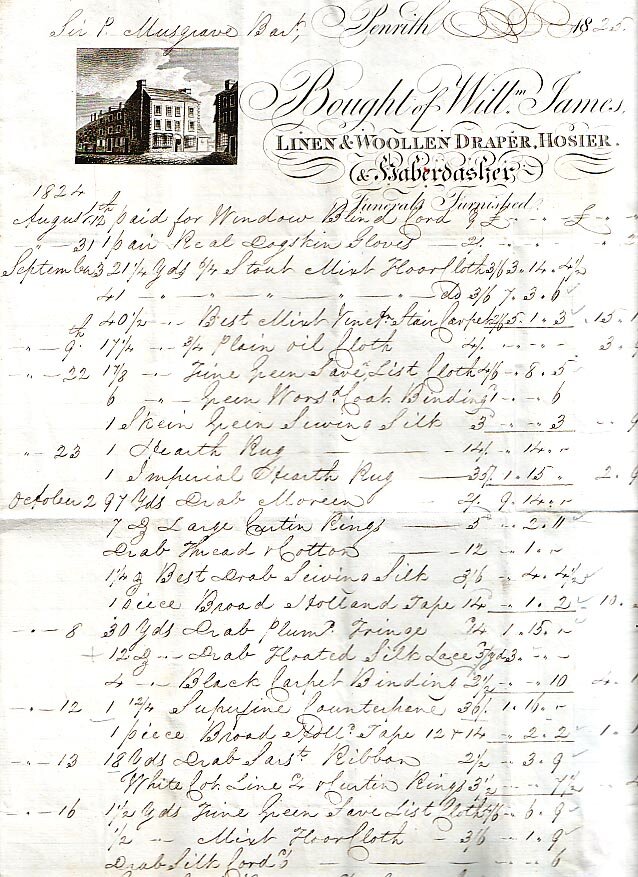 Sir P. Musgrave Bart, Penrith 1825.
Bought of Will.m James,
LINEN & WOOLLEN DRAPER, HOSIER.
& Haberdasher,
Funerals Furnished.
1824
August 12 paid for Window Blind Cord £ £
" 31 1 pair Real Dogskin Gloves 2/.
September 3 21 1/4 Yds 6/4 Stout Mixt Floor Cloth 3/6 3. 14. 4 1/2
41 " " " " " Do 3/6 7. 3. 6
40 1/2 " Best Mixt Stair Carpet 2/6 5. 1. 3 15. 1
" 9th 17 1/4 " 3/4 Plain oil Cloth 4/. 3. 9
" 22 1 7/8 " Fine Green List Cloth 4/6 " 8. 5
6 " Green Wors.d Coat Binding 1 " " 6
1 Skein Green Sewing Silk 3 " " 3
" 23 1 Hearth Rug 14/. " 14. "
1 Imperial Hearth Rug 35/. 1. 15 " 2. 9
October 2 97 Yds Drab Moreen 2/. 9. 14. "
7 Large Curtin Rings 5 " 2. 11
Drab Thread & Cotton 12 " 1. "
1 1/4 Best Drab Sewing Silk 3/6 " 4. 4 1/2
1 piece Broad Holland Tape 14 " 1. 2 10.
" 8 30 Yds Drab Plum.d Fringe 14 1. 15. "
12 " Drab Floated Silk Lace 3. " "
4 " Black Carpet Binding 2 1/2 " " 10 4.
" 12 1 12/4 Superfine Counterpane 36/. 1. 16. "
1 piece Broad Holl.d Tape 12 & 14 " 2. 2 1.
" 13 18 Yds Drab Sars.t Ribbon 2 1/2 " 3. 9
White Cot. Line & Curtin Rings 3 1/2 " " 7 1/2
" 16 1 1/2 Yds Fine Green List Cloth 4/6 " 6. 9
1/2 " Mixt Floor Cloth 3/6 " 1. 9
Drab Silk Cord " " 6